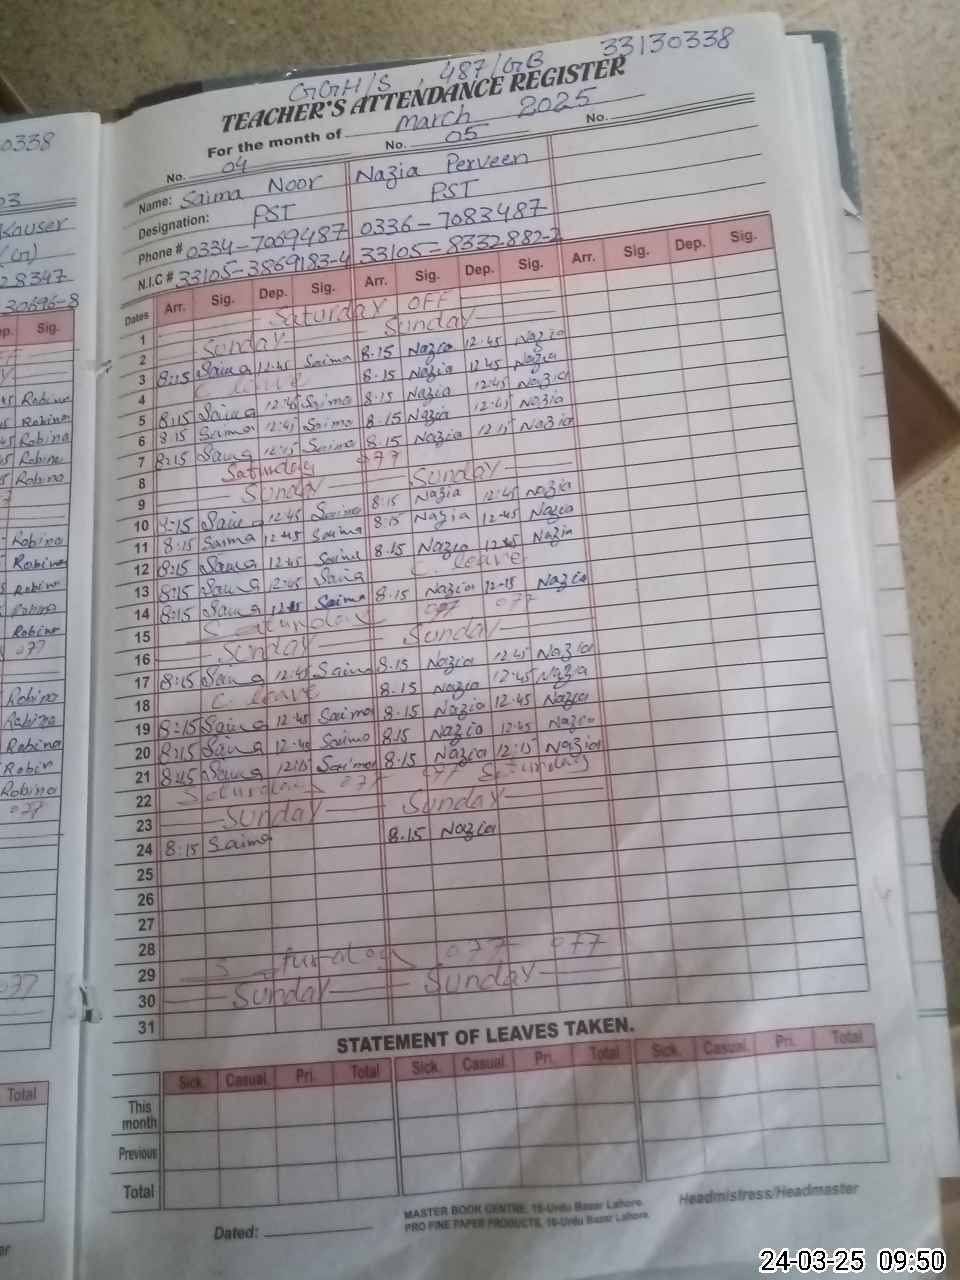 GGH/S, 487/GB 33130338
TEACHER'S ATTENDANCE REGISTER
For the month of March 2025
No. 04 No. 05 No.
Name: Saima Noor Nazia Perveen
Designation: PST PST
Phone # 0334-7069487 0336-7083487
N.I.C # 33105-3869183-4 33105-8332882-2
Dates Arr. Sig. Dep. Sig. Arr. Sig. Dep. Sig. Arr. Sig. Dep. Sig.
1 Saturday OFF
2 Sunday Sunday
3 8:15 Saima 12:45 Saima 8.15 Nazia 12:45 Nazia
4 C. leave 8.15 Nazia 12.45 Nazia
5 8:15 Saima 12:45 Saima 8.15 Nazia 12:45 Nazia
6 8.15 Saima 12:45 Saima 8.15 Nazia 12:45 Nazia
7 8:15 Saima 12:15 Saima 8.15 Nazia 12:15 Nazia
8 Saturday OFF
9 Sunday Sunday
10 8:15 Saima 12:45 Saima 8.15 Nazia 12:45 Nazia
11 8:15 Saima 12:45 Saima 8:15 Nazia 12:45 Nazia
12 8:15 Saima 12:45 Saima 8.15 Nazia 12:45 Nazia
13 8:15 Saima 12:45 Saima C. leave
14 8:15 Saima Saima 8.15 Nazia 12-15 Nazia
15 Saturday OFF OFF
16 Sunday Sunday
17 8:15 Saima 12:45 Saima 8.15 Nazia 12.45 Nazia
18 C. leave 8.15 Nazia 12:45 Nazia
19 8:15 Saima 12:45 Saima 8.15 Nazia 12.45 Nazia
20 8:15 Saima 12:45 Saima 8.15 Nazia 12:45 Nazia
21 8:15 Saima 12:15 Saima 8.15 Nazia 12:15 Nazia
22 Saturday OFF OFF Saturday
23 Sunday Sunday
24 8:15 Saima 8.15 Nazia
25
26
27
28
29 Saturday OFF OFF
30 Sunday Sunday
31
STATEMENT OF LEAVES TAKEN.
Sick. Casual. Pri. Total Sick. Casual. Pri. Total Sick. Casual. Pri. Total
This month
Previous
Total
Dated:
MASTER BOOK CENTRE, 16-Urdu Bazar Lahore.
PRO FINE PAPER PRODUCTS, 16-Urdu Bazar Lahore.
Headmistress/Headmaster
24-03-25 09:50